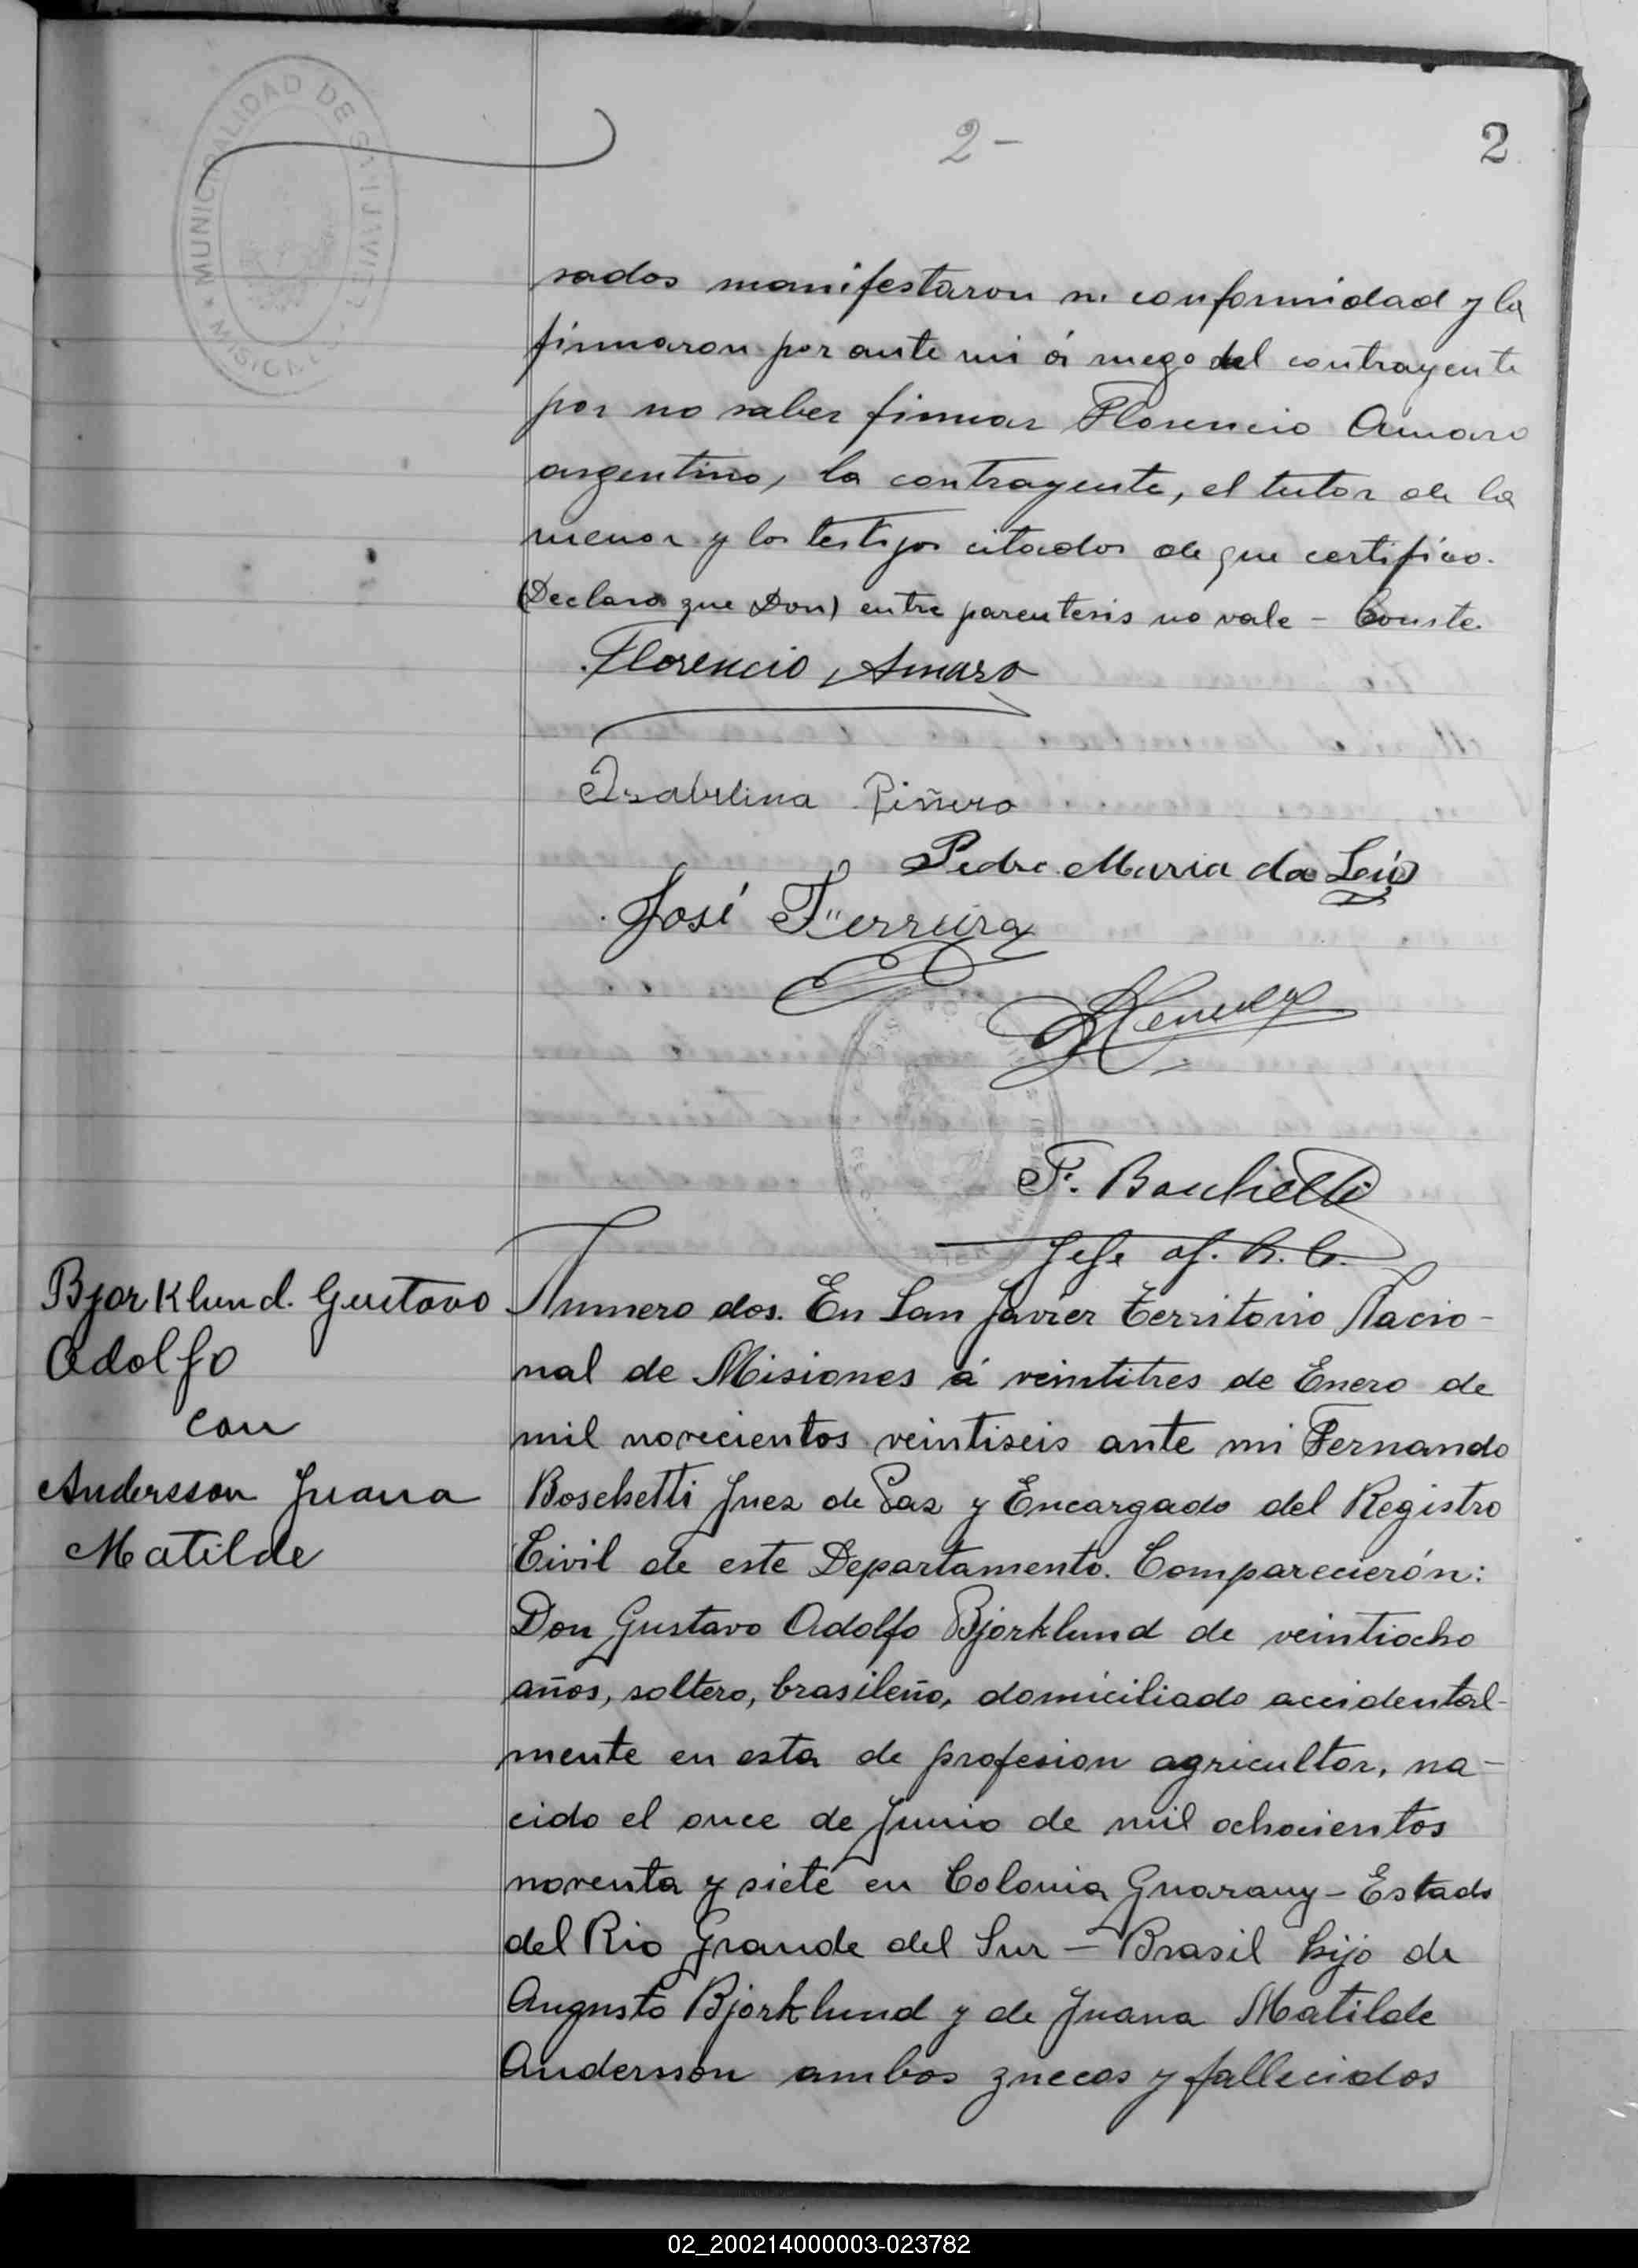 MUNICIPALIDAD DE SAN JAVIER
MISIONES
2-
2
sados manifestaron su conformidad y la
firmaron por ante mi á ruego del contrayente
por no saber firmar Florencio Amaro
argentino, la contrayente, el tutor de la
menor y los testigos citados de que certifico.
(Declara que Don) entre parentesis no vale - Conste.
Florencio Amaro
Isabelina Piñero
Pedro Maria da Luis
José Ferreira
F. Boschetti
Jefe of. R. C.
Bjorklund. Gustavo
Adolfo
con
Andersson Juana
Matilde
Numero dos. En San Javier Territorio Nacio-
nal de Misiones á veintitres de Enero de
mil novecientos veintiseis ante mi Fernando
Boschetti Juez de Paz y Encargado del Registro
Civil de este Departamento. Comparecierón:
Don Gustavo Adolfo Bjorklund de veintiocho
años, soltero, brasileño, domiciliado accidental-
mente en esta de profesion agricultor, na-
cido el once de Junio de mil ochocientos
noventa y siete en Colonia Guarany - Estado
del Rio Grande del Sur - Brasil hijo de
Augusto Bjorklund y de Juana Matilde
Andersson ambos zuecos y fallecidos
02_200214000003-023782